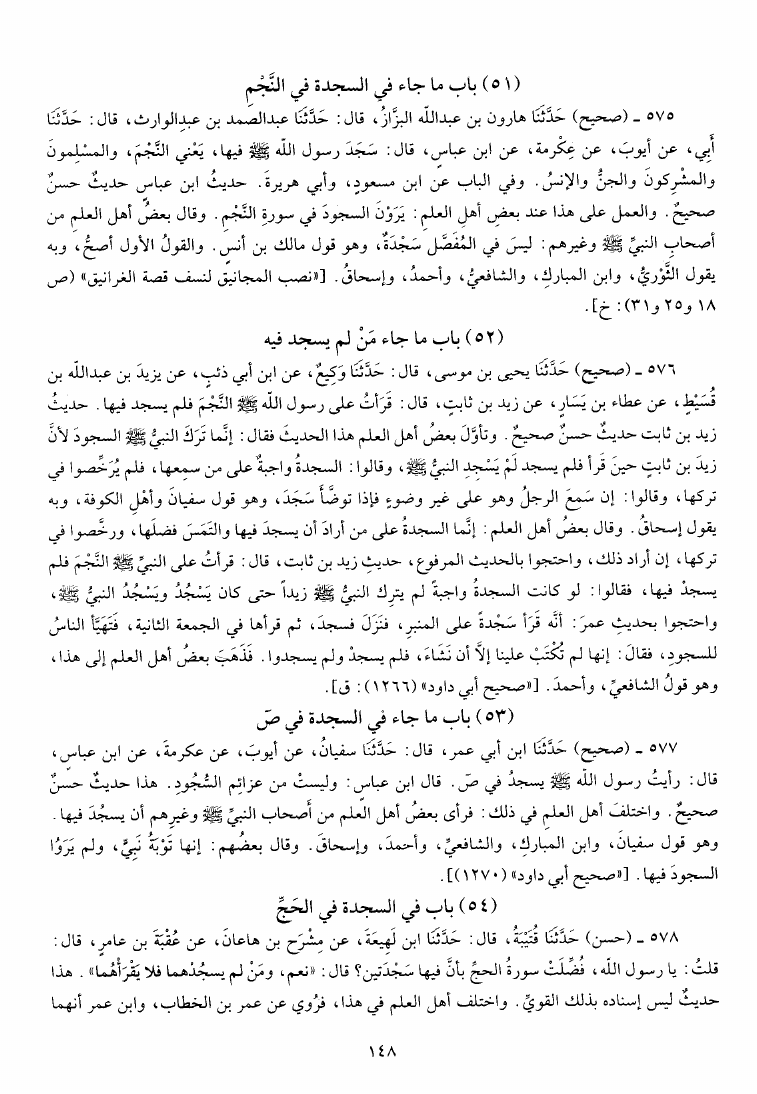 (٥١) باب ما جاء في السجدة في النَّجْمِ
٥٧٥ ـ (صحيح) حَدَّثَنَا هارون بن عبدالله البزَّازُ، قال: حَدَّثَنَا عبدالصمد بن عبدِالوارث، قال: حَدَّثَنَا
أَبِي، عن أيوبَ، عن عِكْرمة، عن ابن عباسٍ، قال: سَجَدَ رسول الله ﷺ فيها، يَعْني النَّجْمَ، والمسْلِمونَ
والمشْرِكونَ والجنُّ والإنسُ. وفي الباب عن ابن مسعودٍ، وأبي هريرةَ. حديثُ ابن عباسٍ حديثٌ حسنٌ
صحيحٌ. والعمل على هذا عند بعضِ أهلِ العلمِ: يَرَوْنَ السجودَ في سورةِ النَّجْمِ. وقال بعضُ أهل العلم من
أصحابِ النبيِّ ﷺ وغيرهم: ليسَ في المُفَصَّل سَجْدَةٌ، وهو قول مالك بن أنسٍ. والقولُ الأول أصحُّ، وبه
يقول الثَّوْريُّ، وابن المباركِ، والشافعيُّ، وأحمدُ، وإسحاقُ. [«نصب المجانيق لنسف قصة الغرانيق» (ص
١٨ و٢٥ و٣١): خ].
(٥٢) باب ما جاء مَنْ لم يسجد فيه
٥٧٦ ـ (صحيح) حَدَّثَنَا يحيى بن موسى، قال: حَدَّثَنَا وَكِيعٌ، عن ابن أبي ذئبٍ، عن يزيدَ بن عبدالله بن
قُسَيْطٍ، عن عطاء بن يَسَارٍ، عن زيد بن ثابتٍ، قال: قَرَأتُ على رسول الله ﷺ النَّجْمَ فلم يسجد فيها. حديثُ
زيد بن ثابت حديثٌ حسنٌ صحيحٌ. وتأوَّلَ بعضُ أهل العلم هذا الحديثَ فقال: إنَّما تَرَكَ النبيُّ ﷺ السجودَ لأنَّ
زيدَ بن ثابتٍ حينَ قَرأ فلم يسجد لَمْ يَسْجِدِ النبيُّ ﷺ، وقالوا: السجدةُ واجبةٌ على من سمِعها، فلم يُرَخِّصوا في
تركها، وقالوا: إن سَمِعَ الرجلُ وهو على غير وضوءٍ فإذا توضَّأَ سَجَدَ، وهو قول سفيانَ وأهْلِ الكوفة، وبه
يقول إسحاقُ. وقال بعضُ أهل العلم: إنَّما السجدةُ على من أرادَ أن يسجدَ فيها والتَمَسَ فضلَها، ورخَّصوا في
تركها، إن أراد ذلك، واحتجوا بالحديث المرفوع، حديثِ زيد بن ثابت، قال: قرأتُ على النبيِّ ﷺ النَّجْمَ فلم
يسجدْ فيها، فقالوا: لو كانت السجدةُ واجبةً لم يتركِ النبيُّ ﷺ زيداً حتى كان يَسْجُدُ ويَسْجُدُ النبيُّ ﷺ،
واحتجوا بحديثِ عمرَ: أنَّه قَرَأ سَجْدةً على المنبرِ، فنَزَلَ فسجدَ، ثم قرأها في الجمعة الثانية، فَتَهَيَّأ الناسُ
للسجودِ، فقالَ: إنها لم تُكْتَبْ علينا إلاَّ أن نَشَاءَ، فلم يسجدْ ولم يسجدوا. فَذَهَبَ بعضُ أهل العلم إلى هذا،
وهو قولُ الشافعيِّ، وأحمدَ. [«صحيح أبي داود» (١٢٦٦): ق].
(٥٣) باب ما جاء في السجدة في صَ
٥٧٧ ـ (صحيح) حَدَّثَنَا ابن أبي عمر، قال: حَدَّثَنَا سفيانُ، عن أيوبَ، عن عكرمةَ، عن ابن عباسٍ،
قال: رأيتُ رسول الله ﷺ يسجدُ في صَ. قال ابن عباسٍ: وليستْ من عزائِم السُّجُودِ. هذا حديثٌ حسنٌ
صحيحٌ. واختلفَ أهل العلمِ في ذلك: فرأى بعضُ أهل العلم من أصحاب النبيِّ ﷺ وغيرِهم أن يسجُدَ فيها.
وهو قول سفيانَ، وابن المباركِ، والشافعيِّ، وأحمدَ، وإسحاقَ. وقال بعضُهم: إنها تَوْبَةُ نَبِيٍّ، ولم يَرَوُا
السجودَ فيها. [«صحيح أبي داود» (١٢٧٠)].
(٥٤) باب في السجدة في الحَجِّ
٥٧٨ ـ (حسن) حَدَّثَنَا قُتَيْبَةُ، قال: حَدَّثَنَا ابن لَهِيعَةَ، عن مِشْرَح بن هاعانَ، عن عُقْبَةَ بن عامرٍ، قال:
قلتُ: يا رسول الله، فُضِّلَتْ سورةُ الحجِّ بأنَّ فيها سَجْدَتينِ؟ قال: «نعم، ومَنْ لم يسجُدْهما فلا يَقْرَأْهُما». هذا
حديثٌ ليس إسناده بذلك القويِّ. واختلف أهل العلم في هذا، فرُوي عن عمر بن الخطاب، وابن عمر أنهما
١٤٨